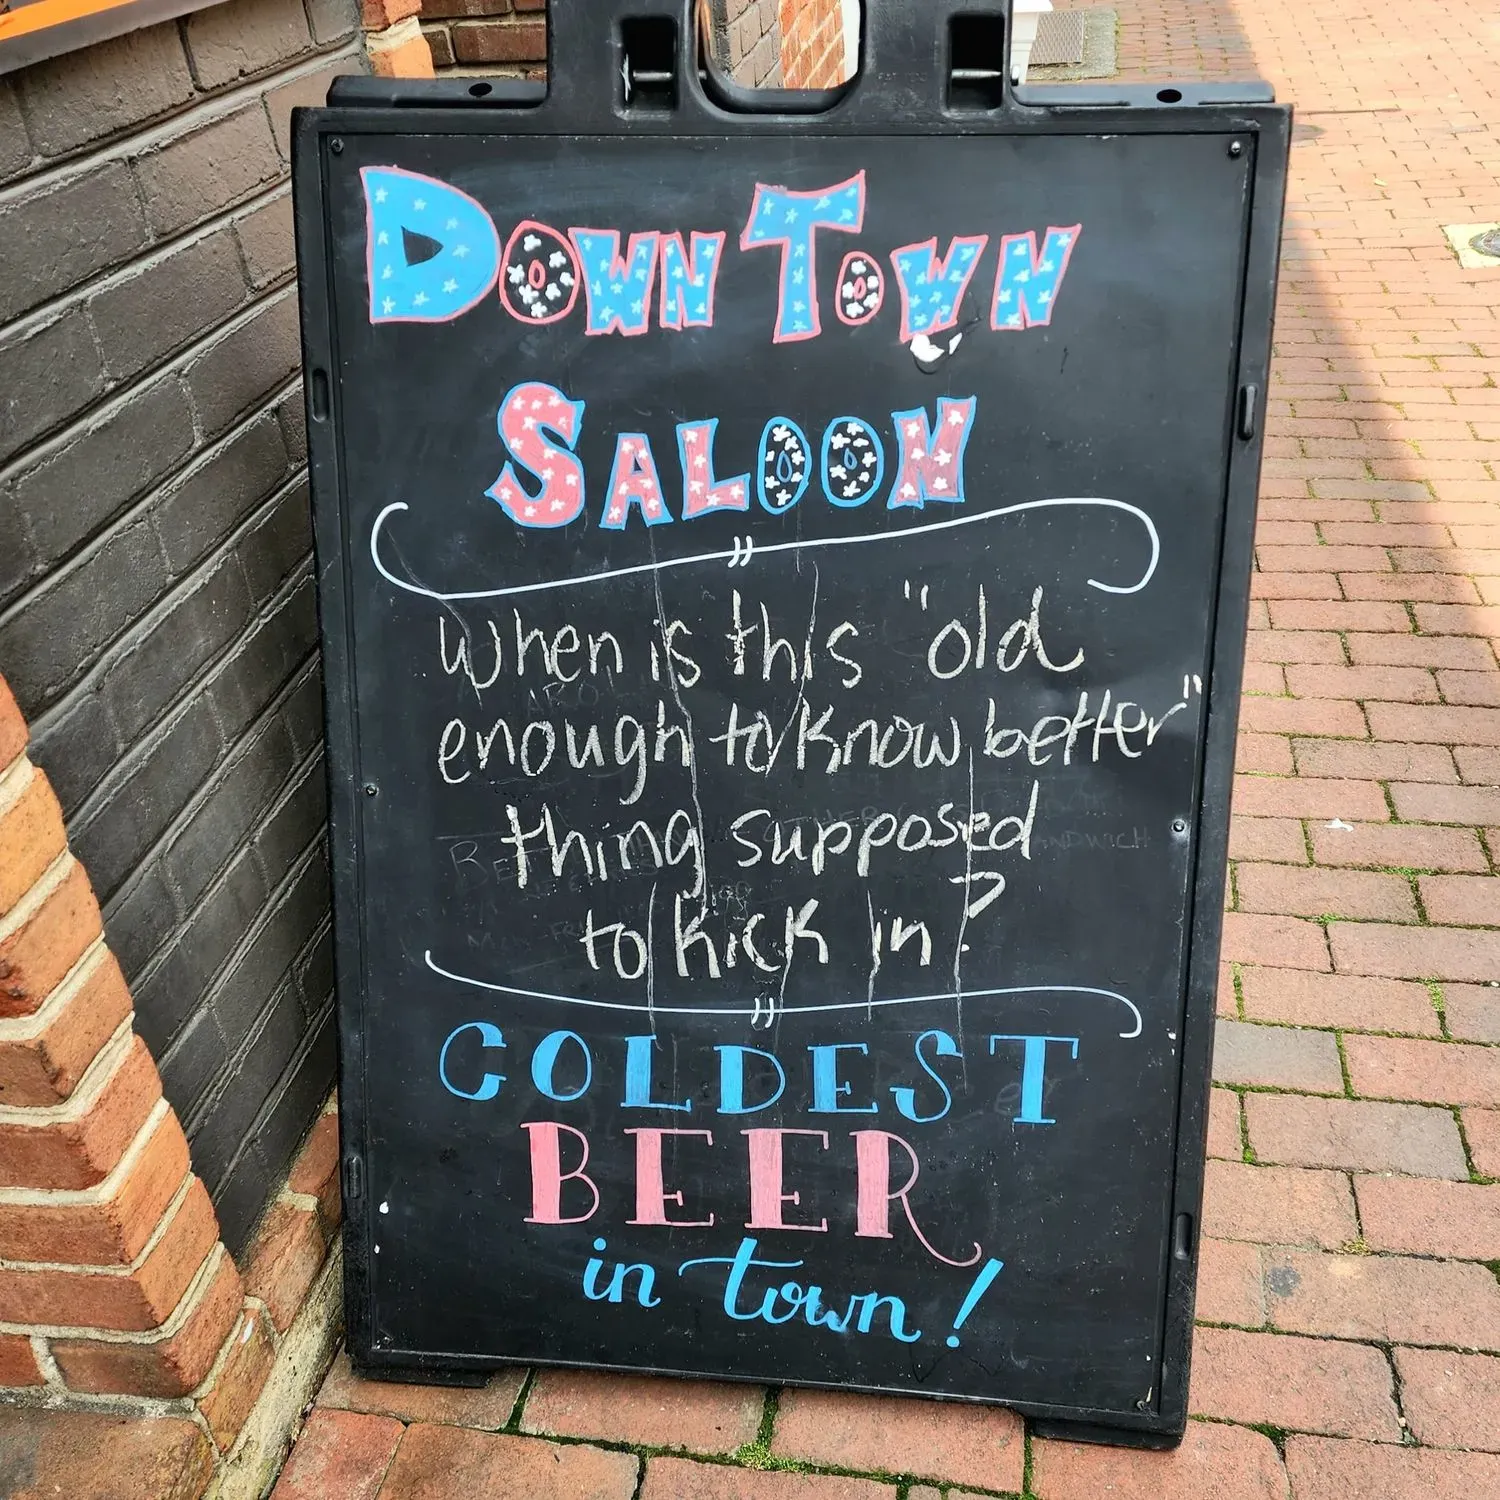 DOWN TOWN
SALOON
When is this "old
enough to know better"
thing supposed
to kick in?
COLDEST
BEER
in town!